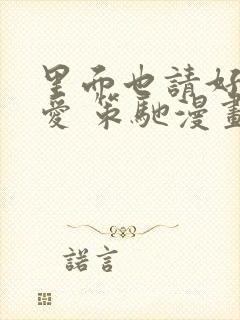 里而也請好
愛 策馳漫畫
諾言